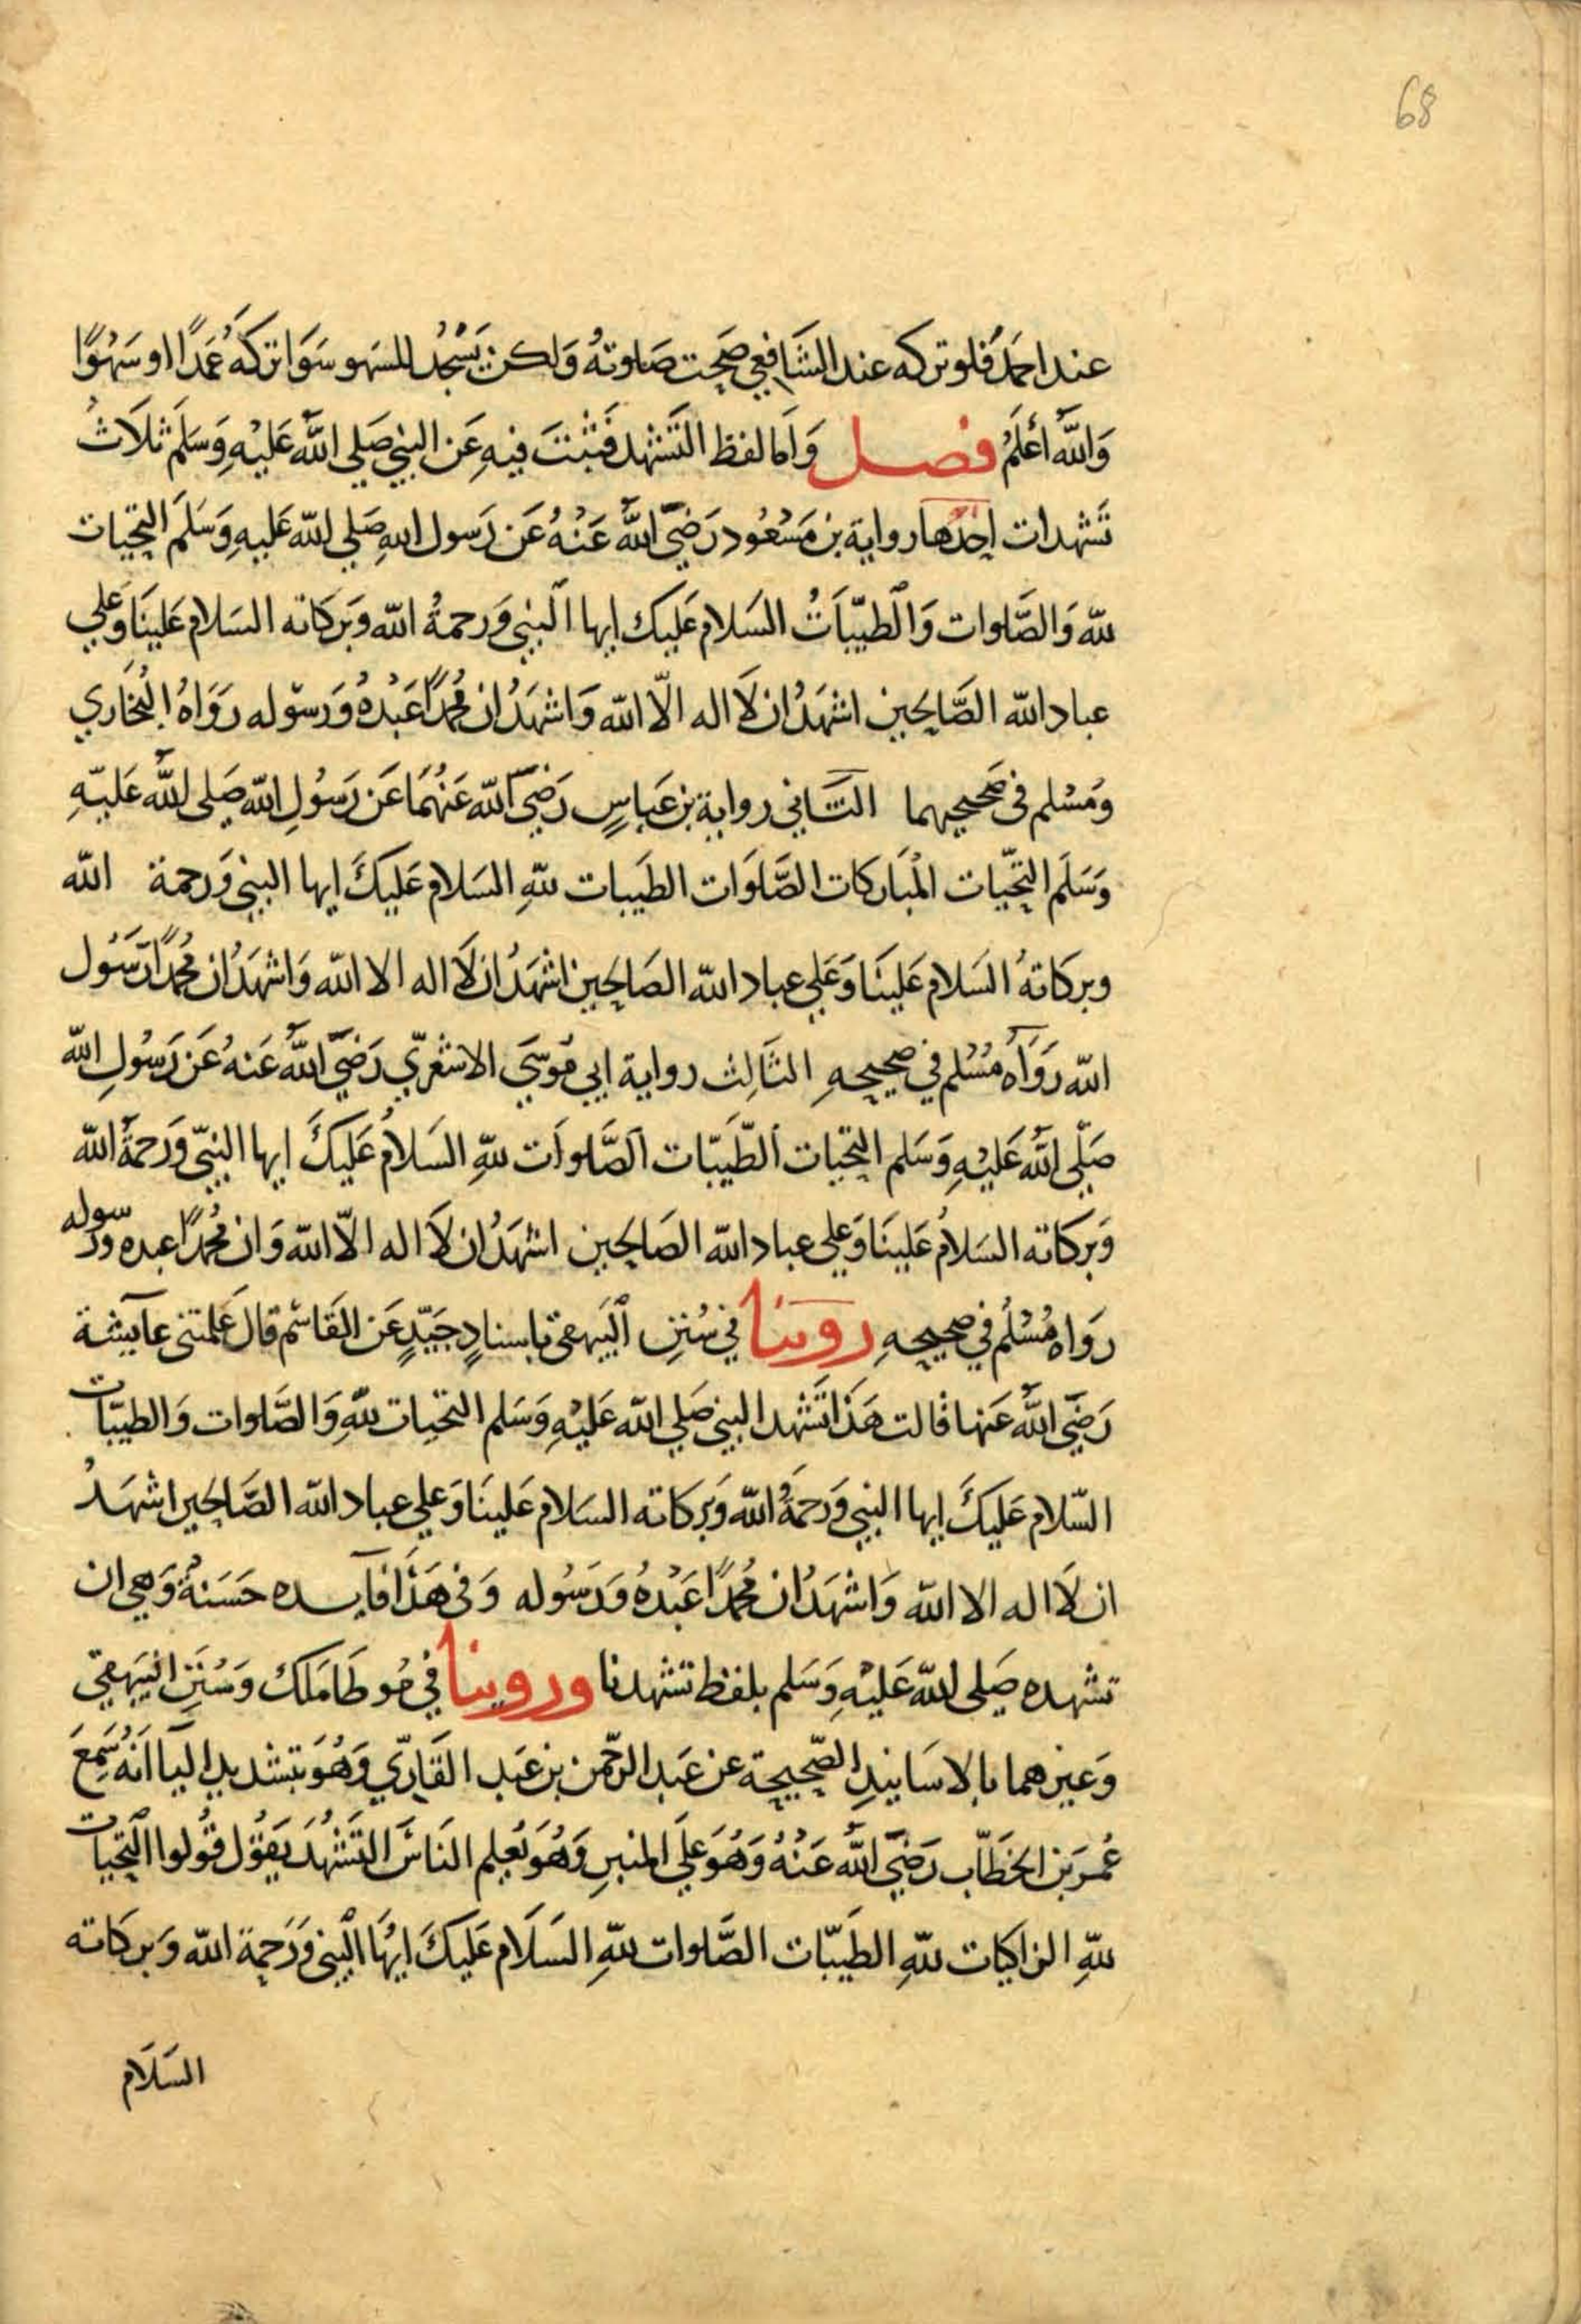 68
عند احمَد فلو تركه عند الشَافعِي صَحِت صَلوتهُ وَلكن يَسْجُد للسَهو سَوَا تركهُ عَمَدًا او سَهْوًا
وَاللَّه اعْلَمُ فصل وَامَا لفظ التَشَهد فَثبْتَ فيهِ عَن النبيِ صَلي اللَّه عَليْهِ وَسَلَم ثلَاثُ
تَشَهدات احِدَها رواية بن مَسْعُود رَضِيَ اللَّه عَنْهُ عَن رَسول اللهِ صَلي اللّه عَليهِ وَسَلَم التحِيات
للّه وَالصَّلوات وَالطيّبَاتُ السَلام عَليك ايها النبي وَرحمةُ اللّه وَبَركاته السَلام عَلينَا وَعَلي
عباد اللّه الصَّالِحين اشهَدُ ان لَا اله الّا اللّه وَاشهَدُ ان مُحمدًا عَبْدهُ وَرسوله رَوَاهُ البُخاري
وَمُسْلم فى صَحيحِيهما الثَاني رواية بن عَباسٍ رَضيَ اللّه عَنهُمَا عَن رَسُولِ اللّه صَلى اللَّه عَليهِ
وَسَلَم التحِيّات المْبَاركات الصَّلوَات الطَيبات للّهِ السَلام عَليكَ ايها النبي وَرحمة اللّه
وبركاتهُ السَلام عَلينَا وَعَلي عباد اللّه الصَالِحين اشهَدُ ان لَا اله الا اللّه وَاشهَدُ ان مُحمدًا رَسُول
اللّه رَوَاهُ مُسْلم في صحيحِهِ الثَالِث رواية ابي مُوسَي الاشعَريّ رَضيَ اللَّه عَنهُ عَن رَسُولِ اللّه
صَلّي اللَّه عَليْهِ وَسَلم التحيات الطّيبَات الصَّلوات للّهِ السَلَامُ عَليكَ ايها النبيّ وَرَحمةُ اللّه
وَبركاته السَلَامُ عَلينَا وَعَلي عباد اللّه الصَالِحين اشهَدُ ان لَا اله الّا اللّه وَان مُحمدًا عبده ورسوله
رَواه مُسْلمُ في صحيحِهِ روينا في سُنَنِ البَيهقي باسنادٍ جَيّدٍ عَن القَاسِم قالَ عَلمتنى عايشة
رَضيَ اللَّه عَنها قالت هَذا تَشَهد النبي صَلي اللّه عَليْهِ وَسَلم التحيات للّهِ وَالصَّلوات وَالطيبّات
السّلام عَليكَ ايها النبي وَرَحمَةُ اللّه وَبَركاته السَلام عَلينَا وَعَلي عباد اللّه الصَّالِحين اشهَدُ
ان لَا اله الا اللّه وَاشهَدُ ان مُحمدًا عَبْدهُ وَرَسُوله وَفى هَذَا فايده حَسَنةٌ وَهي ان
تشهده صَلى اللّه عَليْهِ وَسَلم بلفظ تشهدنا وروينا في مُوطا مَلك وَسُنَنِ البَيهقي
وَغيرهما بالاسَانيدِ الصّحِيحِة عن عَبد الرّحمن بن عَبد القَارِيّ وَهُوَ بتشديد اليَا انَهُ سَمِعَ
عُمرَ بن الخطّاب رَضيَ اللَّه عَنْهُ وَهُوَ عَلَي المنبرِ وَهُوَ يُعلم النَاسَ التَشَهُدَ يَقوُل قُولوا التحيات
للّهِ الزاكيات للّهِ الطَيبّات الصَّلوات للّهِ السَلَام عَليكَ ايهُا النبي وَرَحمة اللّه وَبركاته
السَلَام